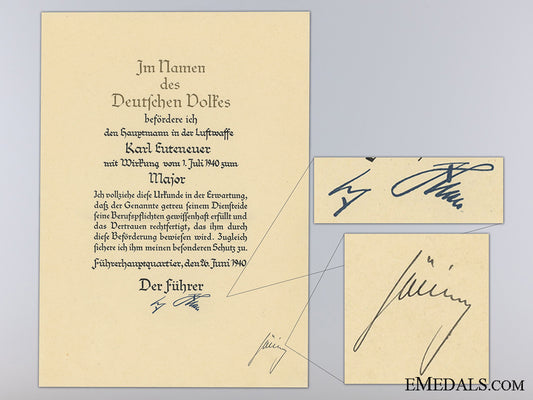 Im Namen
des
Deutschen Volkes
befördere ich
den Hauptmann in der Luftwaffe
Karl Euteneuer
mit Wirkung vom 1. Juli 1940 zum
Major
Ich vollziehe diese Urkunde in der Erwartung,
daß der Genannte getreu seinem Diensteide
seine Berufspflichten gewissenhaft erfüllt und
das Vertrauen rechtfertigt, das ihm durch
diese Beförderung bewiesen wird. Zugleich
sichere ich ihm meinen besonderen Schutz zu.
Führerhauptquartier, den 26. Juni 1940
Der Führer
Göring
Göring
EMEDALS.COM